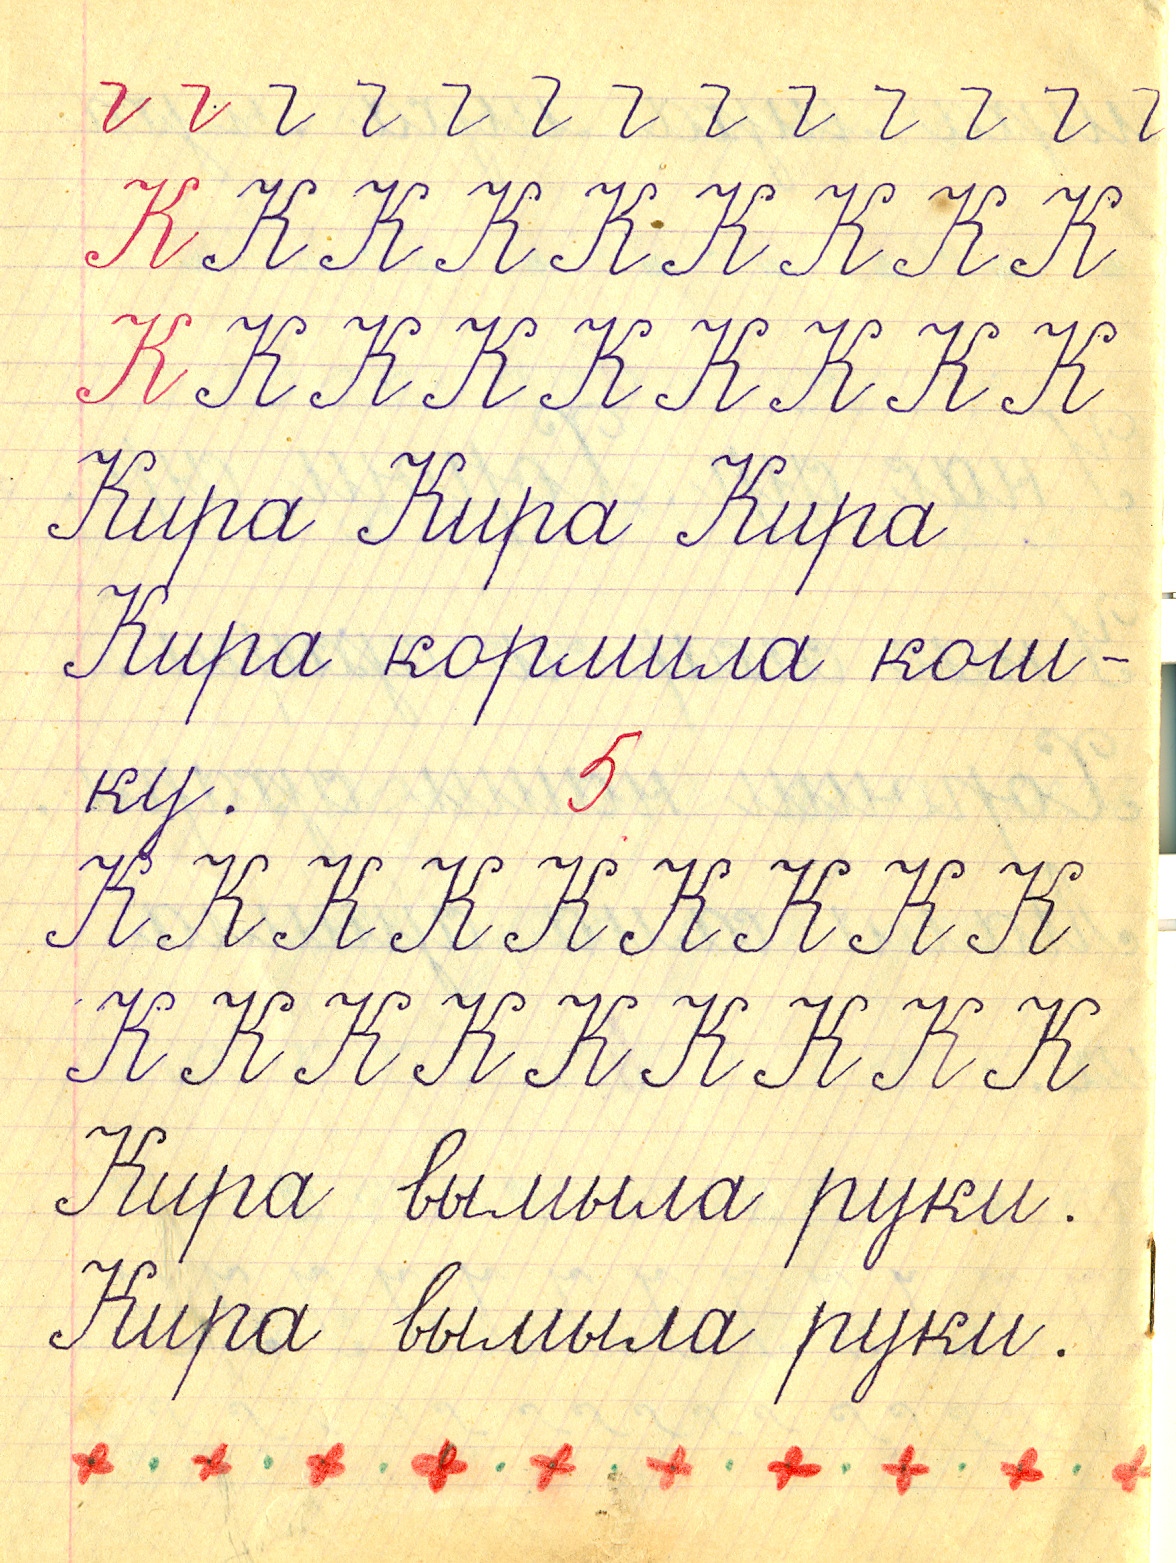 К К К К К К К К К
К К К К К К К К К
Кира Кира Кира
Кира кормила кош-
ку. 5
К К К К К К К К К
К К К К К К К К К
Кира вымыла руки.
Кира вымыла руки.